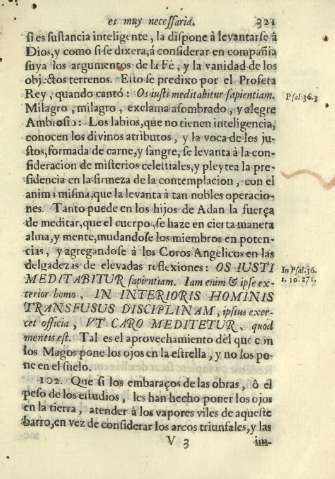 es muy necessaria. 321
si es sustancia inteligente, la dispone à levantarse à
Dios, y como si se dixera, à considerar en compañia
suya los argumentos de la Fé, y la vanidad de los
objectos terrenos. Esto se predixo por el Profeta
Rey, quando cantó: Os iusti meditabitur sapientiam.
Psal. 36. 3
Milagro, milagro, exclama asombrado, y alegre
Ambrosio: Los labios, que no tienen inteligencia,
conocen los divinos atributos, y la voca de los ju-
stos, formada de carne, y sangre, se levanta à la con-
sideracion de misterios celestiales, y pleytea la pre-
sidencia en la firmeza de la contemplacion, con el
anima misma, que la levanta à tan nobles operacio-
nes. Tanto puede en los hijos de Adan la fuerça
de meditar, que el cuerpo, se haze en cierta manera
alma, y mente, mudandose los miembros en poten-
cias, y agregandose à los Coros Angelicos en las
delgadezas de elevadas reflexiones: OS IUSTI
In Psal. 36.
MEDITABITUR sapientiam. Iam enim & ipse ex-
terior homo, IN INTERIORIS HOMINIS
TRANSFUSUS DISCIPLINAM, ipsius exer-
cet officia, VT CARO MEDITETUR, quod
mentis est. Tal es el aprovechamiento del que con
los Magos pone los ojos en la estrella, y no los po-
ne en el suelo.
102. Que si los embaraços de las obras, ò el
peso de los estudios, les han hecho poner los ojos
en la tierra, atender à los vapores viles de aqueste
barro, en vez de considerar los arcos triunfales, y las
V 3 im-